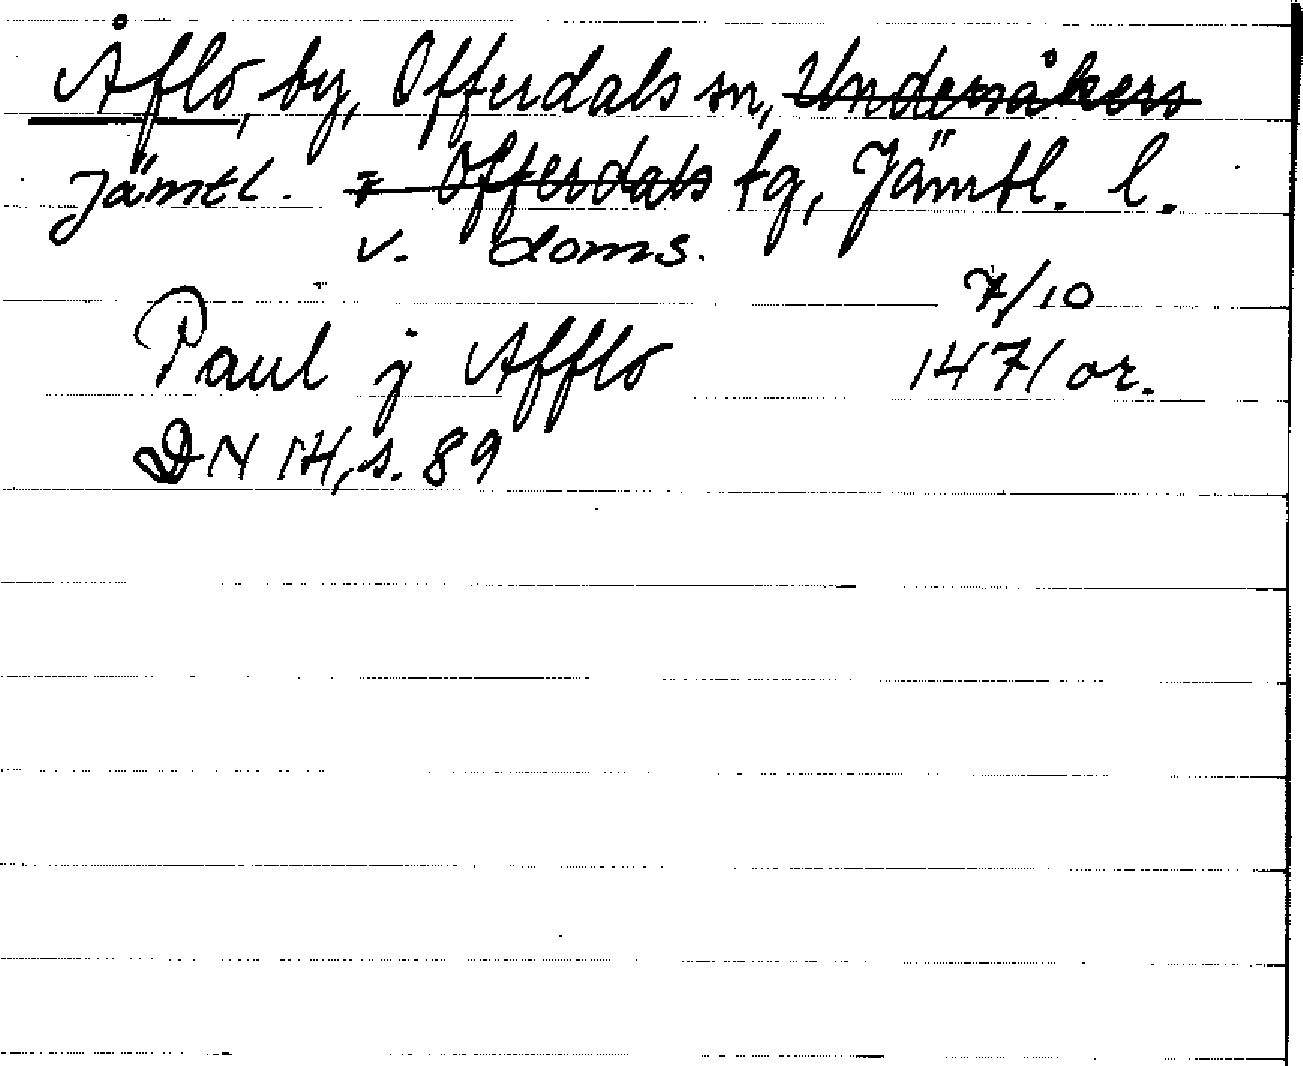 Åflo, by, Offerdals sn, Undersåkers
Jämtl. o Offerdals tg, Jämtl. l.
v. doms.
7/10
Paul j Afflo 1471 or.
DN 14, s. 89